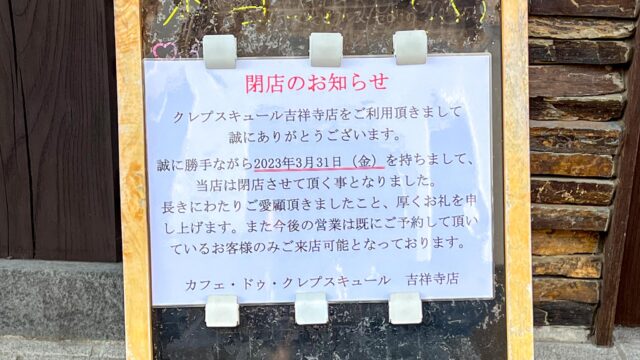 閉店のお知らせ
クレプスキュール吉祥寺店をご利用頂きまして
誠にありがとうございます。
誠に勝手ながら2023年3月31日（金）を持ちまして、
当店は閉店させて頂く事となりました。
長きにわたりご愛顧頂きましたこと、厚くお礼を申
し上げます。また今後の営業は既にご予約して頂い
ているお客様のみご来店可能となっております。
カフェ・ドゥ・クレプスキュール　吉祥寺店